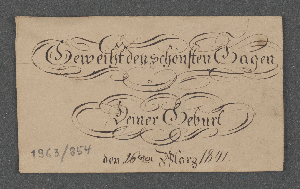 Geweiht den schönsten Tagen
Deiner Geburt
den 16ten März 1841.
1963/854